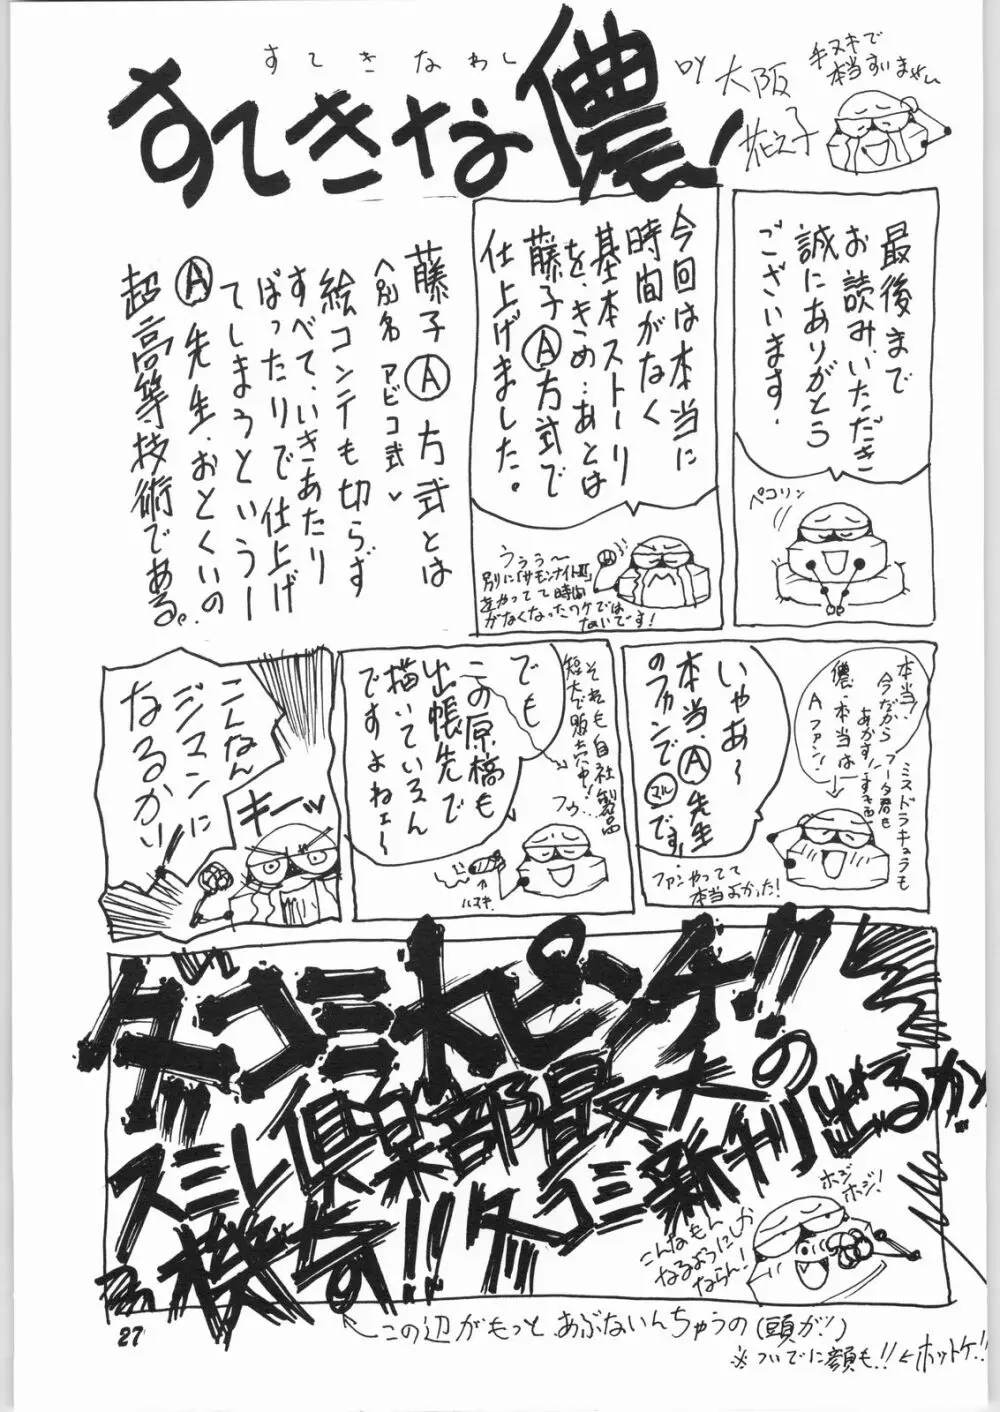 すてきなわし
すてきな儂!
by 大阪
花之子
手ヌキで
本当すいません
最後まで
お読みいただき
誠にありがとう
ございます.
ペコリン
今回は本当に
時間がなく
基本ストーリー
を、きめ…あとは
藤子Ⓐ方式で
仕上げました。
うぅぅ〜
別に「サモンナイトⅢ」
がなくなったワケでは
ないです!
藤子Ⓐ方式とは
<別名 アビコ式>
絵コンテも切らず
すべて、いきあたり
ばったりで仕上げ
てしまうというー
Ⓐ先生.おとくいの
超高等技術である。
本当、
今だから
フータ君も
ミスドラキュラも
儂、本当は
Aファン!
いやあ〜
本当、Ⓐ先生
のファンで
です,
ファンやってて
本当よかった!
それも自社製品
短大で販売中!
でも
この原稿も
出張先で
描いているん
ですよねェ〜
フゥ…
こんなん
ジマンに
なるかい
キーッ
ダーコミ大ピンチ!!
スミレ倶楽部
の
新刊出るか
機奇!!
ホジ
ホジ!
こんなもん
ねるようにしか
ならん!
この辺がもっと、あぶないんちゃうの(頭が!)
※ついでに顔も!!←ホットケ!!
27